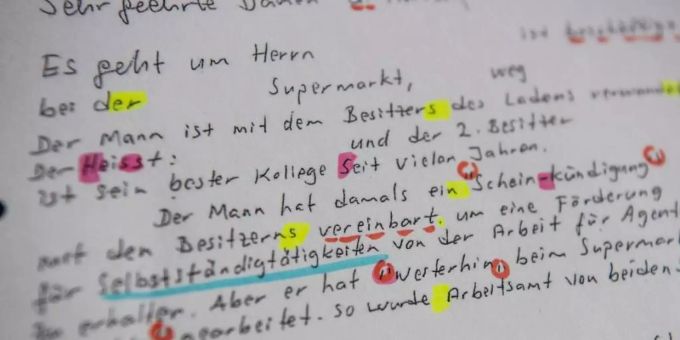 Sehr geehrte Damen
ist beschäftigt
Es geht um Herrn
bei der Supermarkt, weg
Der Mann ist mit dem Besitzers des Ladens
Der Heisst: und der 2. Besitzer
ist sein bester Kollege Seit vielen Jahren.
Der Mann hat damals ein Schein-kündigung
mit den Besitzerns vereinbart. um eine Förderung
für Selbstständigtätigkeiten von der Arbeit für Agent
zu erhalten. Aber er hat westerhin beim Supermar
gearbeitet. So wurde Arbeitsamt von beiden